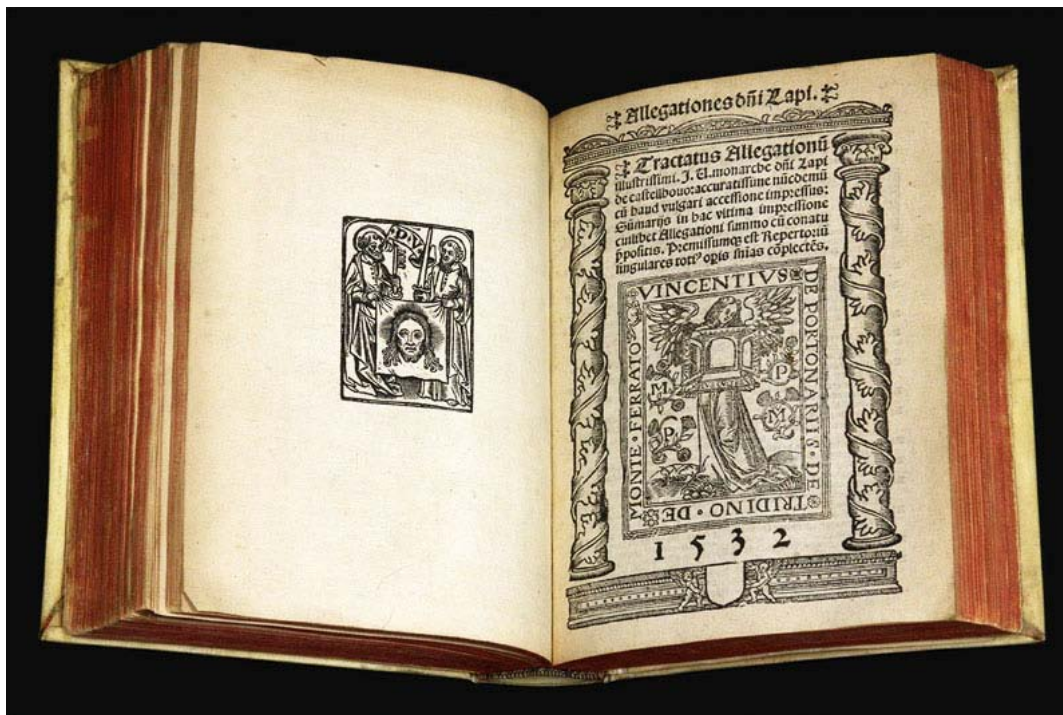 D.V
Allegationes dñi Lapi.
Tractatus Allegationũ
illustrissimi. J. U. monarche dñi Lapi
de castellhouo: accuratissime nũcdemũ
cũ haud vulgari accessione impressus:
Sũmarijs in hac vltima impressione
cuilibet Allegationi summo cũ conatu
p̃positis. Premissumqꝫ est Repertoriũ
singulares totiꝰ oꝑis sñias cõplectẽs.
VINCENTIVS
DE PORTONARIIS · DE
TRIDINO · DE
MONTE · FERRATO
M
P
P
M
1532